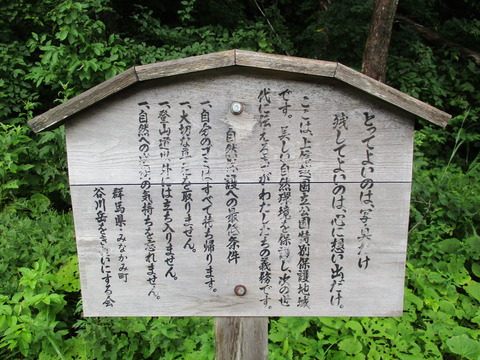 とってよいのは、写真だけ
残してよいのは、心に想い出だけ。
ここは、上信越国立公園特別保護地域
です。美しい自然環境を保護し次の世
代に伝えるのがわたしたちの義務です。
自然保護への最低条件
一、自分のゴミはすべて持ち帰ります。
一、大切な草花を取りません。
一、登山道以外には立ち入りません。
一、自然への感謝の気持ちを忘れません。
群馬県・みなかみ町
谷川岳をきれいにする会